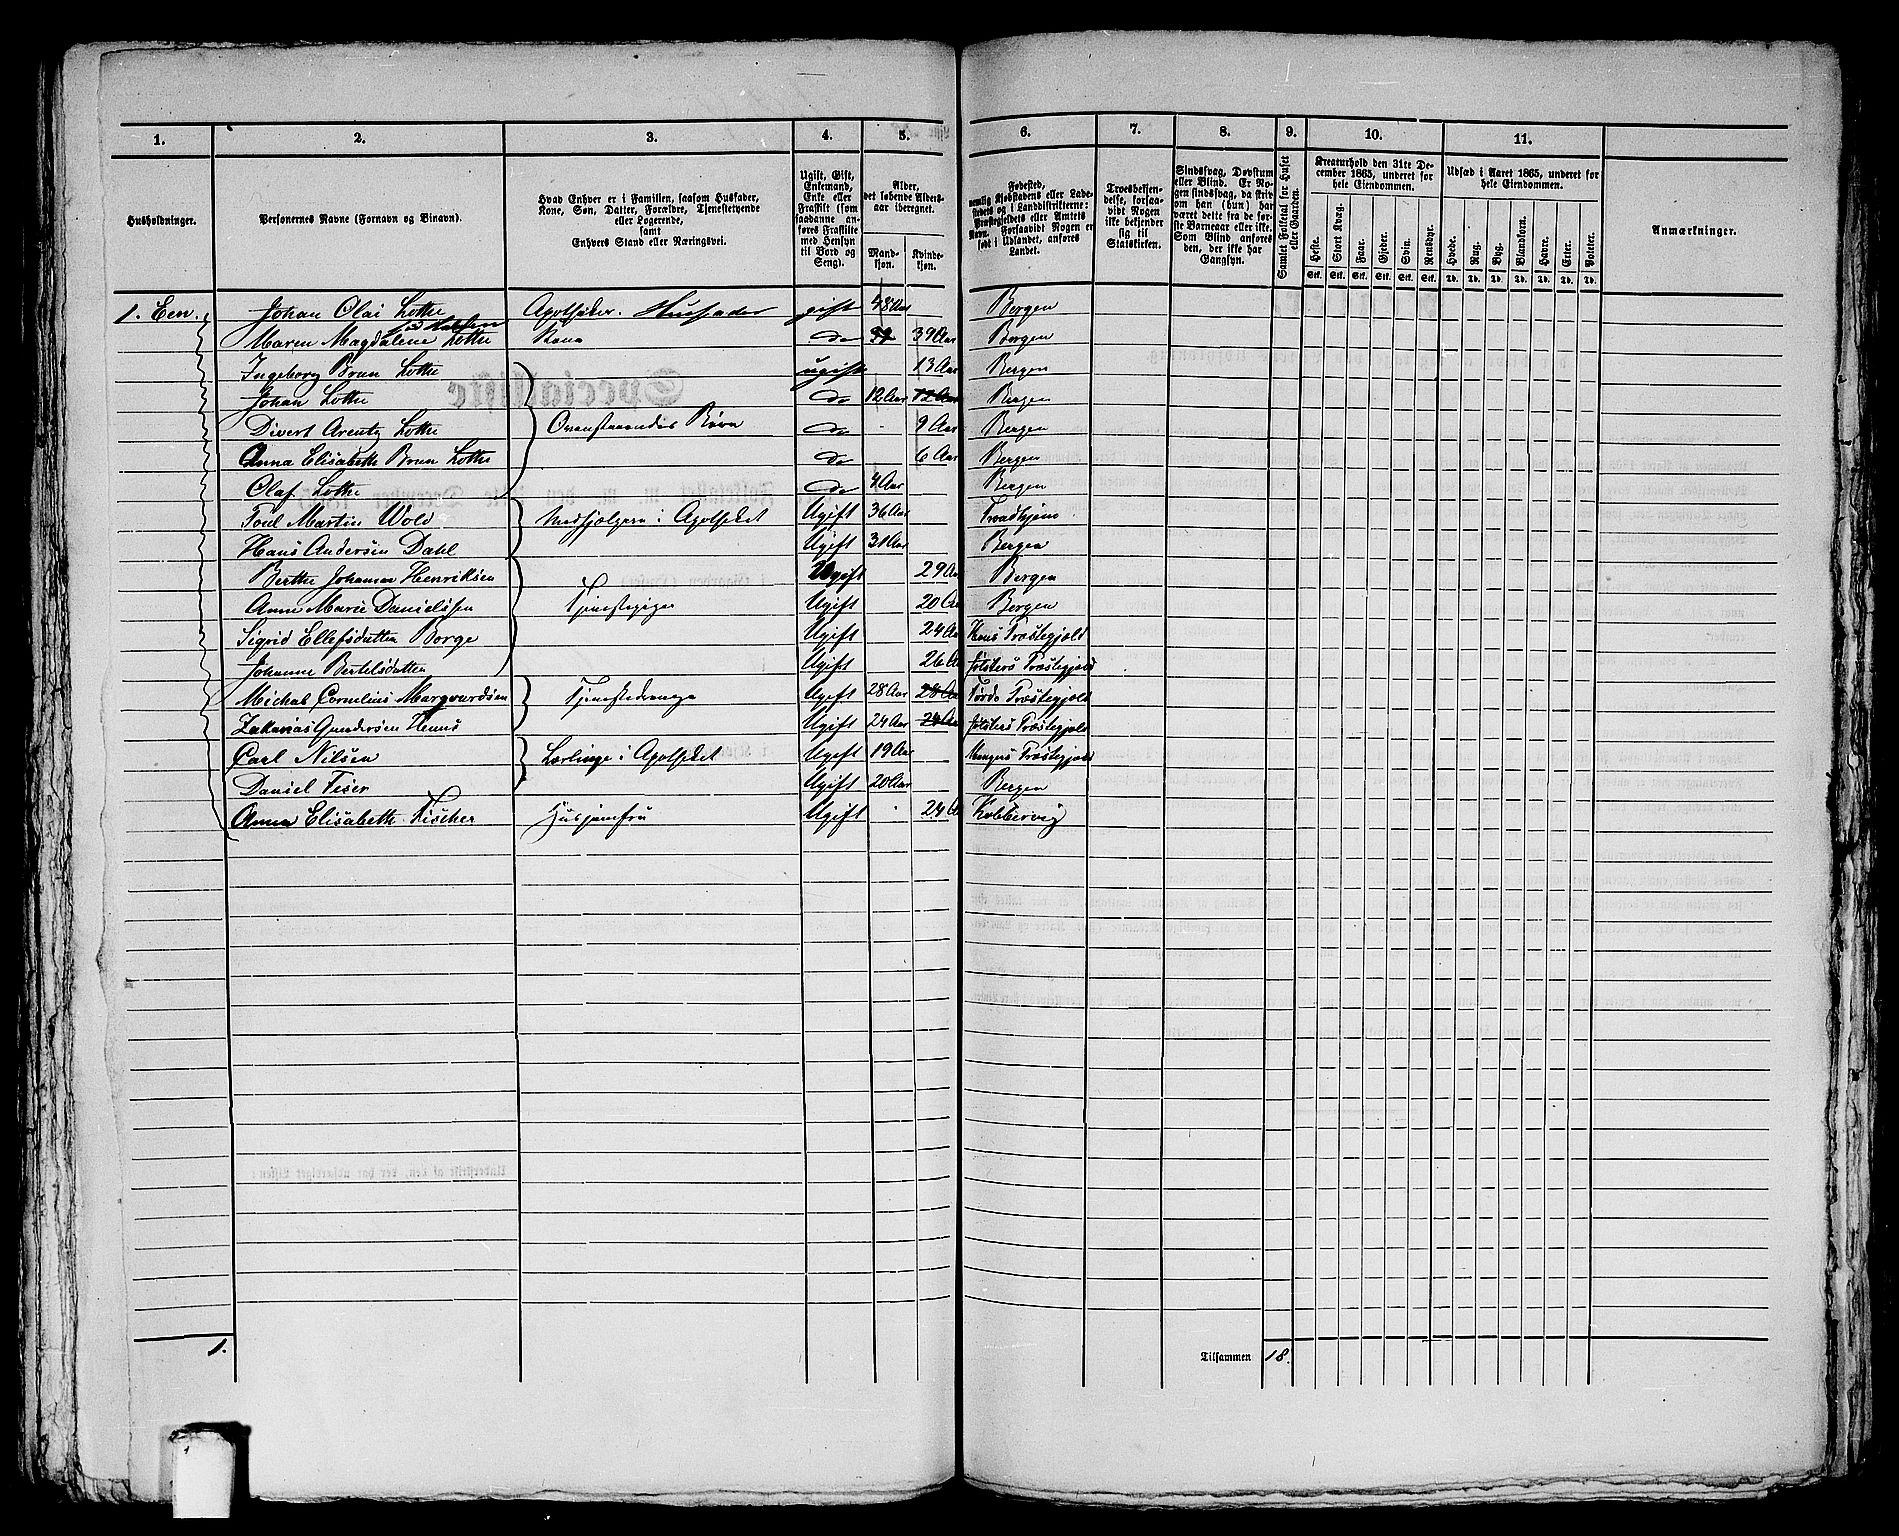 1. 2. 3. 4. 5. 6. 7. 8. 9. 10. 11.
Husholdninger.
Personernes Navne (Fornavn og Binavn).
Hvad Enhver er i Familien, saasom Husfader,
Kone, Søn, Datter, Forældre, Tjenestetyende
eller Logerende,
samt
Enhvers Stand eller Næringsvei.
Ugift, Gift,
Enkemand,
Enke eller
Fraskilt (som
saadanne an-
føres Fraskilte
med Hensyn
til Bord og
Seng).
Alder,
det løbende Alders-
aar iberegnet.
Mand-
kjøn.
Kvinde-
kjøn.
Fødested,
nemlig Kjøbstadens eller Lade-
stedets og i Landdistrikterne:
Præstegjeldets eller Amtets
Navn. Forsaavidt Nogen er
født i Udlandet, anføres
Landet.
Troesbekjen-
delse, forsaa-
vidt Nogen
ikke bekjender
sig til
Statskirken.
Sindssvag, Døvstum
eller Blind. Er No-
gen sindssvag, da skri-
ves om han (hun) har
været dette fra de før-
ste Barneaar eller ikke.
Som Blind anføres
den, der ikke har
Gangsyn.
Samlet Folketal for Huset
eller Gaarden.
Kreaturhold den 31te De-
cember 1865, underet for
hele Eiendommen.
Heste. Stort Kvæg. Faar. Gjeder. Svin. Rensdyr.
Stk. Stk. Stk. Stk. Stk. Stk.
Udsæd i Aaret 1865, underet for
hele Eiendommen.
Hvede. Rug. Byg. Blandkorn. Havre. Erter. Poteter.
Td. Td. Td. Td. Td. Td. Td.
Anmærkninger.
1. Een. Johan Olai Lothe Apotheker. Husfader gift 48 Aar Bergen
Maren Magdalene Lothe Kone do 39 Aar Bergen
Ingeborg Brun Lothe ugift 13 Aar Bergen
Johan Lothe do 12 Aar 12 Aar Bergen
Divert Arentz Lothe Ovenstaaendes Børn do - 9 Aar Bergen
Anna Elisabeth Brun Lothe do 6 Aar Bergen
Olaf Lothe do 4 Aar Bergen
Poul Martin Wold Medhjælpere i Apotheket Ugift 36 Aar Trondhjem
Hans Andersen Dahl Ugift 31 Aar Bergen
Berthe Johanna Henriksen Ugift 29 Aar Bergen
Anne Marie Danielssen Tjenestepiger Ugift 20 Bergen
Sigrid Ellefsdatter Borge Ugift 24 Aa Præstegjeld
Johanne Bertelsdatter Ugift 26 A Jølsters Præstegjeld
Michal Cornelius Margvardsen Tjenestedrenge Ugift 28 Aar 28 Aa Førde Præstegjeld
Zakarias Gundersen Ugift 24 Aar 24 Aa Jølsters Præstegjeld
Carl Nilsen Lærlinge i Apotheket Ugift 19 Aar Mangers Præstegjeld
Daniel Ugift 20 Aar Bergen
Anna Elisabeth Fischer Husjomfru Ugift 24 A Kobbervig
1.
Tilsammen 18.